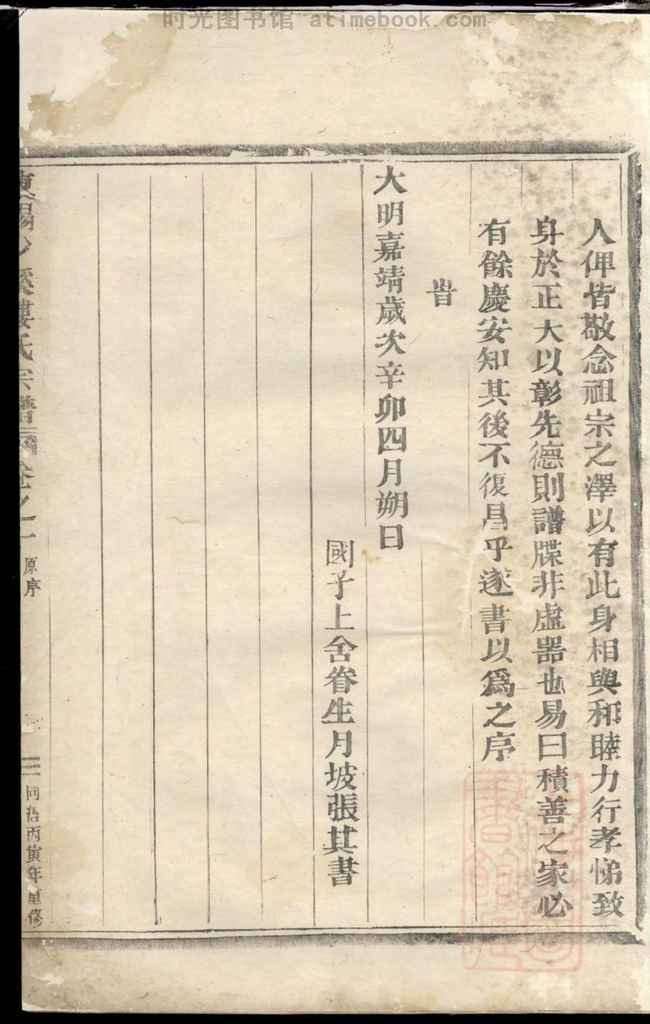 时光图书馆 atimebook.com
人俾皆敬念祖宗之澤以有此身相與和睦力行孝悌致
身於正大以彰先德則譜牒非虛器也易曰積善之家必
有餘慶安知其後不復昌乎遂書以爲之序
旹
大明嘉靖歲次辛卯四月朔日
國子上舍眷生月坡張其書
氏宗譜 卷之一 原序 三 同治丙寅年重修